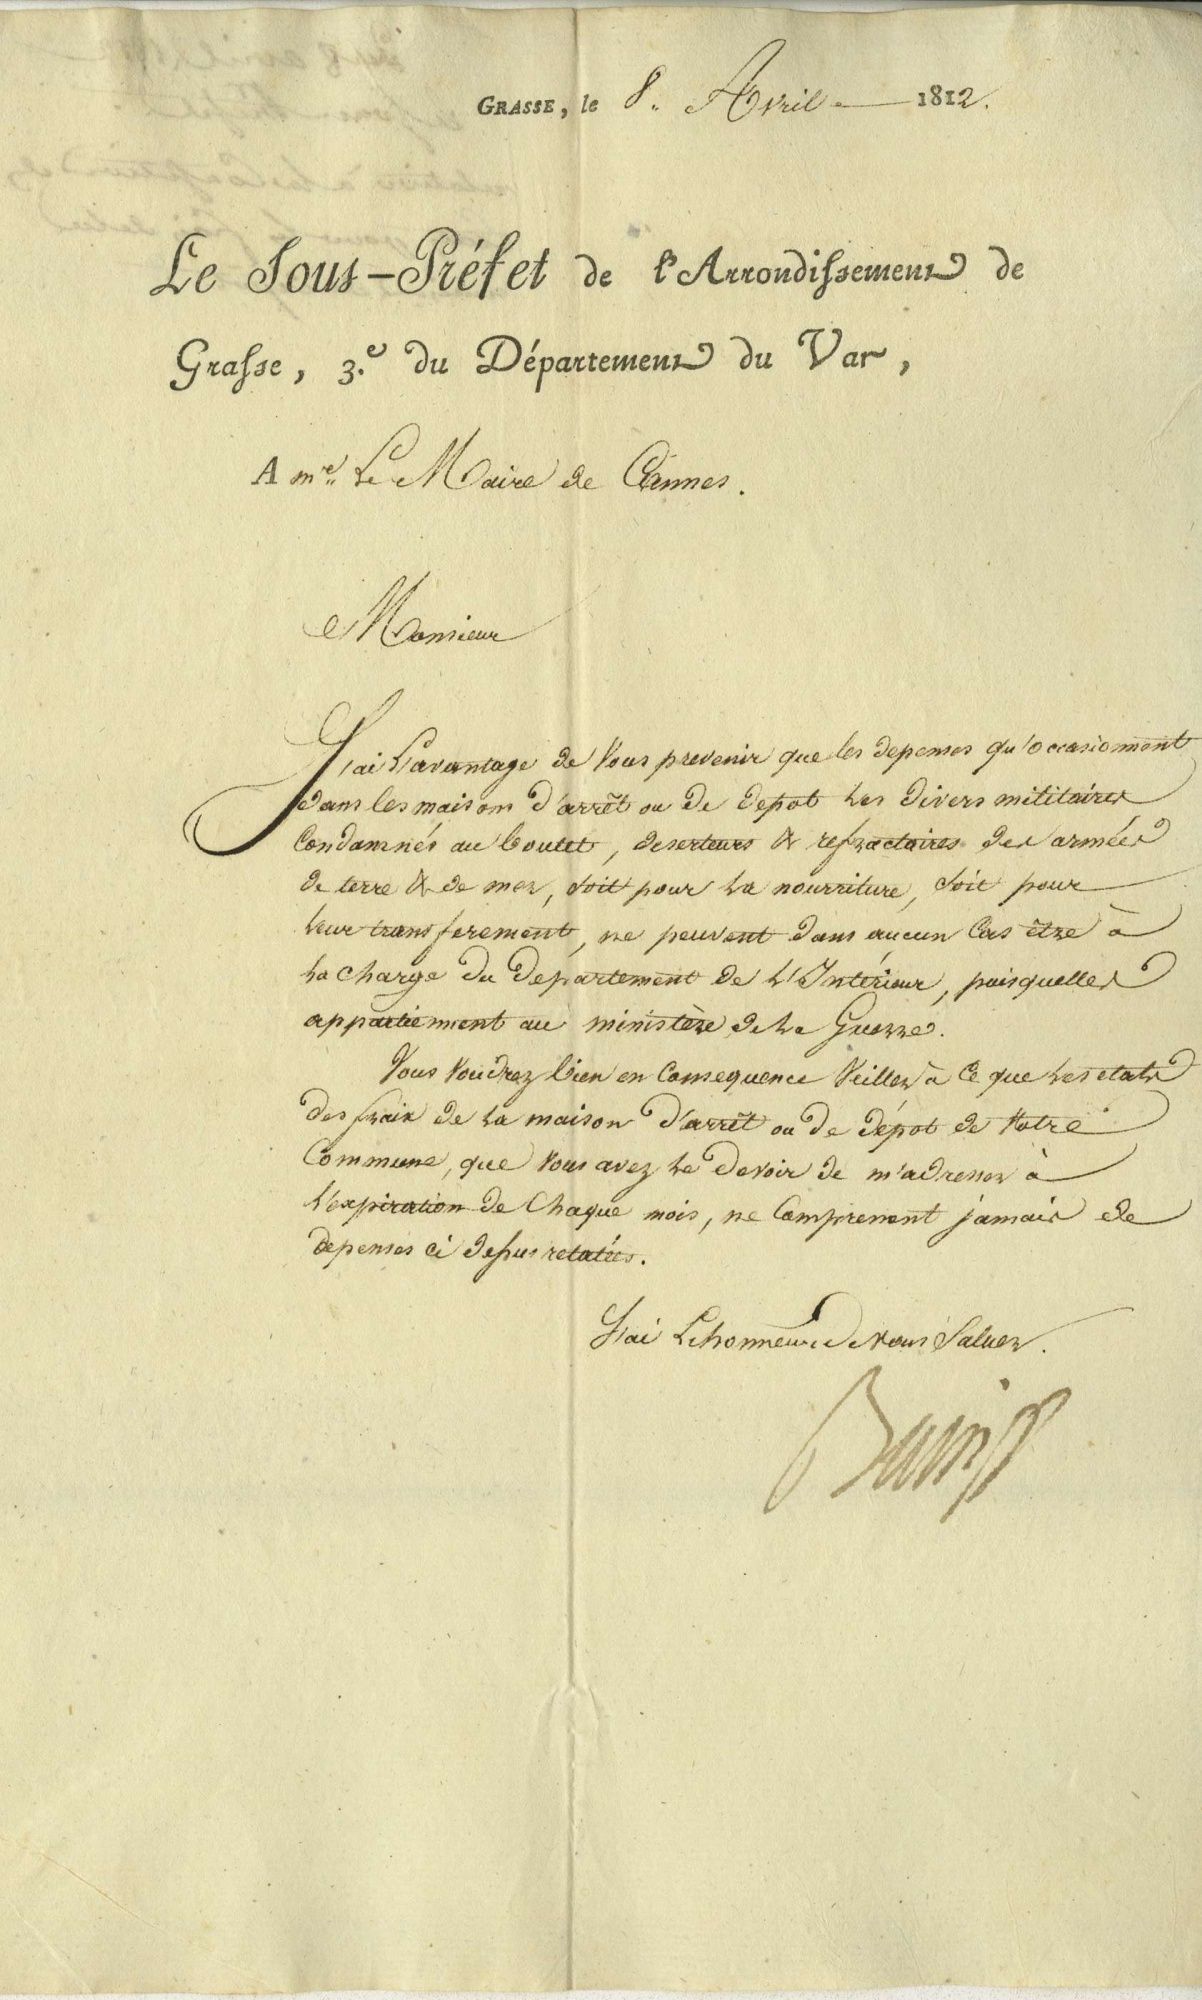 GRASSE, le 8. Avril 1812.
Le Sous-Préfet de l'Arrondissement de
Grasse, 3.e du Département du Var,
A mr. Le Maire de Cannes.
Monsieur
J'ai L'avantage de Vous prevenir que les depenses qu'occasionnent
dans les maisons d'arrêt ou de depot Les divers militaires
Condamnés au boulet, deserteurs & refractaires des armées
de terre & de mer, soit pour La nourriture, soit pour
Leur transferement, ne peuvent dans aucun Cas être à
La charge du département de L'Intérieur, puisquelles
appartiennent au ministère de La Guerre.
Vous Voudrez bien en Consequence Veiller à Ce que Les etats
des fraix de La maison d'arrêt ou de dépot de Votre
Commune, que Vous avez Le Devoir de m'adresser à
L'expiration de Chaque mois, ne Comprenent jamais de
depenses ci dessus relatées.
J'ai L'honneur de vous Saluer.